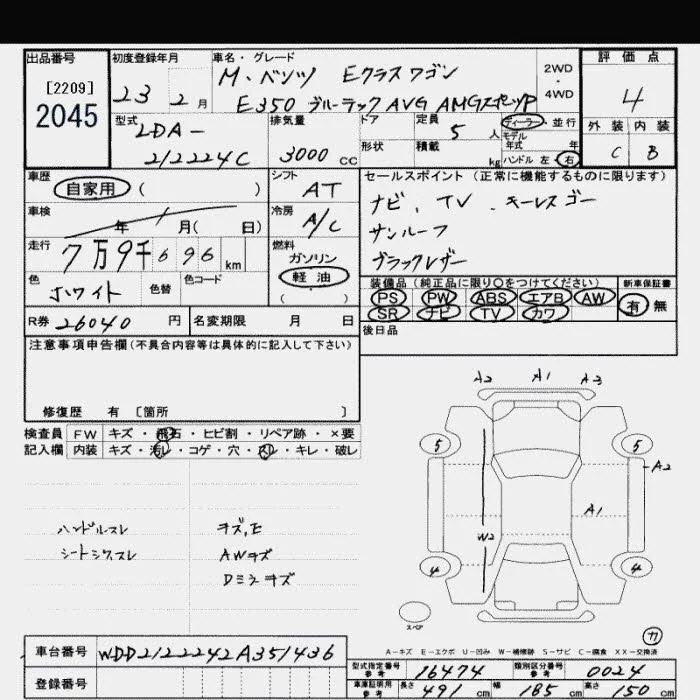 出品番号 初度登録年月 車名・グレード 評価点
[2209] M・ベンツ Eクラスワゴン 2WD
2045 23年 2月 E350 ブルーテック AVG AMGスポーツP ・4WD 4
型式 排気量 ドア 定員 5人 ディーラー・並行 外装 内装
LDA- モデル年式 年
212224C 3000cc 形状 積載 kg ハンドル 左・右 C B
車歴 自家用 ( ) シフト AT セールスポイント (正常に機能するものに限ります)
車検 年 月( 日) 冷房 A/C ナビ、TV、キーレスゴー
走行 7万9千696km 燃料 ガソリン サンルーフ
軽油 ブラックレザー
色 ホワイト 色替 色コード ( )
装備品(純正品に限り〇をつけてください) 新車保証書
PS PW ABS エアB AW 有 無
SR ナビ TV カワ
R券 26040円 名変期限 月 日 後日品
注意事項申告欄(不具合内容等は具体的に記入して下さい)
修復歴 有 [箇所 ]
検査員 FW キズ・飛石・ヒビ割・リペア跡・×要
記入欄 内装 キズ・汚レ・コゲ・穴・スレ・キレ・破レ
A2 A1 A3
5 5
A2
A1
W2
4 4
ハンドルスレ キズ,E
シートシワスレ AWキズ
Dミラーキズ
スペア
A-キズ E-エクボ U-凹み W-補修跡 S-サビ C-腐食 XX-交換済
車台番号 WDD2122242A351436 型式指定番号 参考 16474 類別区分番号 参考 0024
登録番号 車庫証明用 参考 長さ 491cm 幅 185cm 高さ 150cm